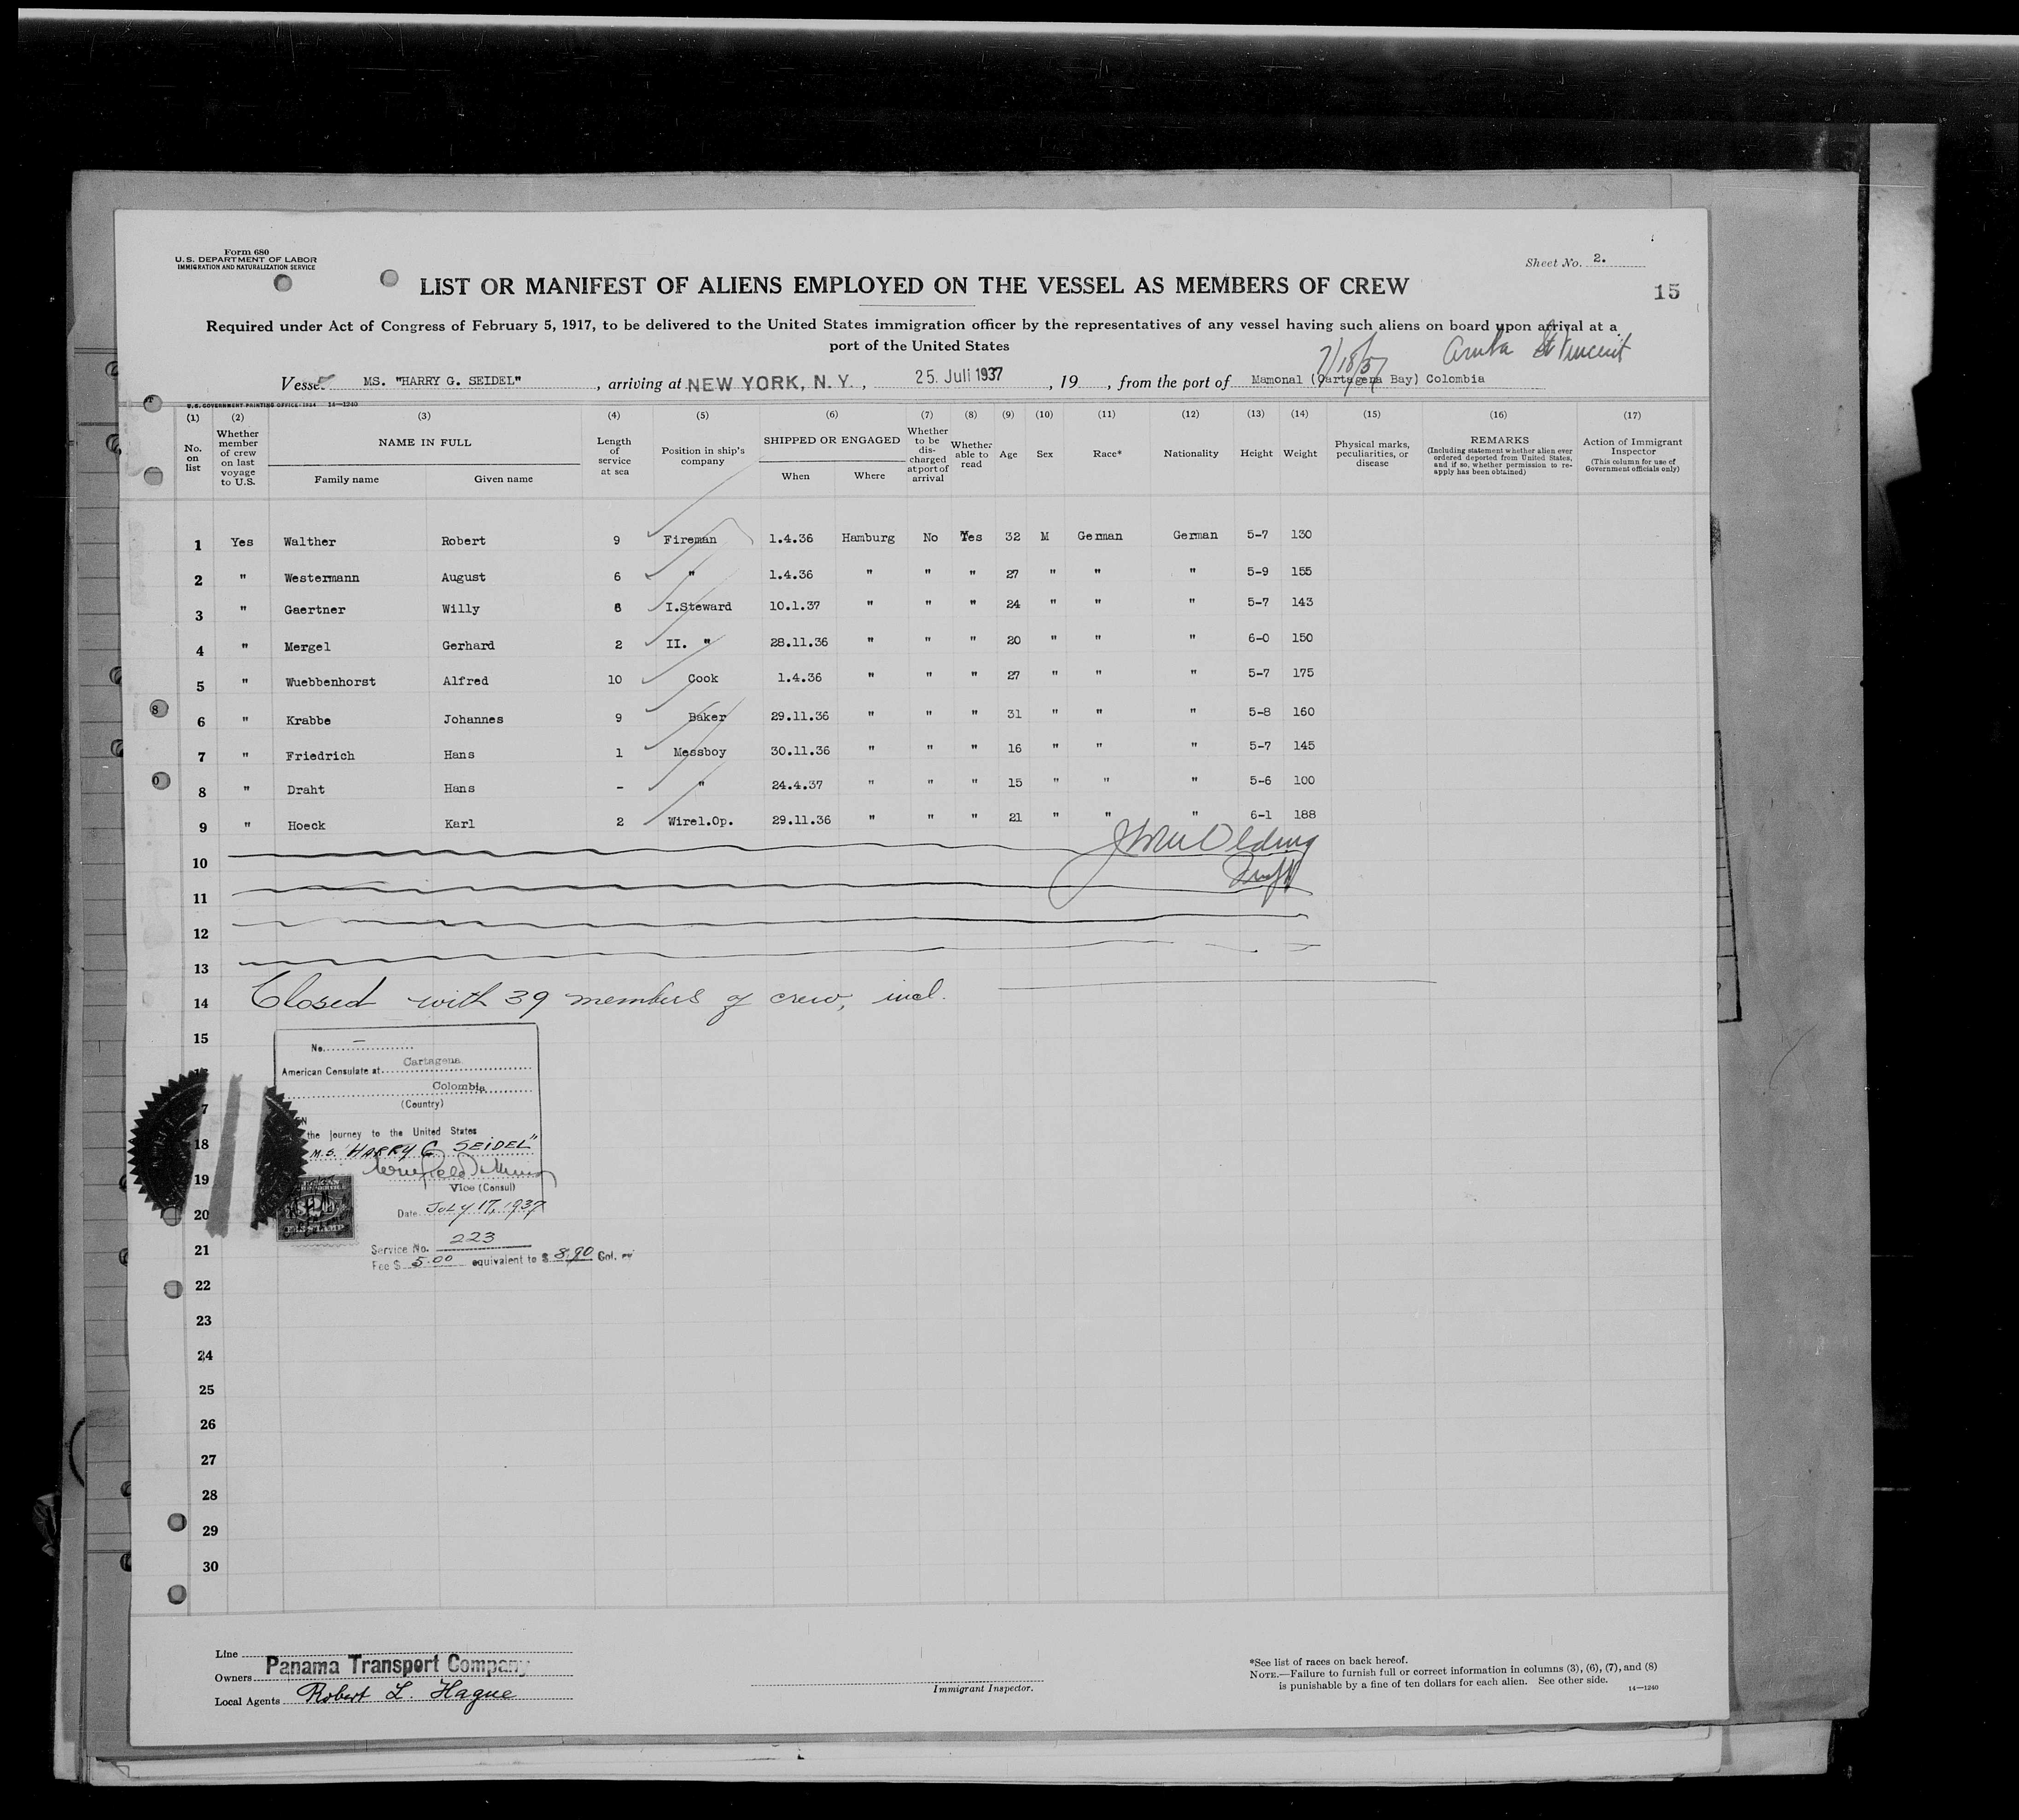 Form 680
U. S. DEPARTMENT OF LABOR
IMMIGRATION AND NATURALIZATION SERVICE
Sheet No. 2.
15
LIST OR MANIFEST OF ALIENS EMPLOYED ON THE VESSEL AS MEMBERS OF CREW
Required under Act of Congress of February 5, 1917, to be delivered to the United States immigration officer by the representatives of any vessel having such aliens on board upon arrival at a
port of the United States
7/18/37 Aruba St Vincent
Vessel MS. "HARRY G. SEIDEL", arriving at NEW YORK, N. Y., 25. Juli 1937, 19, from the port of Mamonal (Cartagena Bay) Colombia
U. S. GOVERNMENT PRINTING OFFICE: 1934 14—1240
(1) (2) (3) (4) (5) (6) (7) (8) (9) (10) (11) (12) (13) (14) (15) (16) (17)
No. on list
Whether member of crew on last voyage to U.S.
NAME IN FULL
Family name
Given name
Length of service at sea
Position in ship's company
SHIPPED OR ENGAGED
When
Where
Whether to be discharged at port of arrival
Whether able to read
Age
Sex
Race*
Nationality
Height
Weight
Physical marks, peculiarities, or disease
REMARKS
(Including statement whether alien ever ordered deported from United States, and if so, whether permission to re-apply has been obtained)
Action of Immigrant Inspector
(This column for use of Government officials only)
1 Yes Walther Robert 9 Fireman 1.4.36 Hamburg No Yes 32 M German German 5-7 130
2 " Westermann August 6 " 1.4.36 " " " 27 " " " 5-9 155
3 " Gaertner Willy 6 I.Steward 10.1.37 " " " 24 " " " 5-7 143
4 " Mergel Gerhard 2 II. " 28.11.36 " " " 20 " " " 6-0 150
5 " Wuebbenhorst Alfred 10 Cook 1.4.36 " " " 27 " " " 5-7 175
6 " Krabbe Johannes 9 Baker 29.11.36 " " " 31 " " " 5-8 160
7 " Friedrich Hans 1 Messboy 30.11.36 " " " 16 " " " 5-7 145
8 " Draht Hans - " 24.4.37 " " " 15 " " " 5-6 100
9 " Hoeck Karl 2 Wirel.Op. 29.11.36 " " " 21 " " " 6-1 188
10
11
12
13
14 Closed with 39 members of crew, incl.
15
No. —
American Consulate at Cartagena
Colombia
(Country)
7
the journey to the United States
18
M.S. "HARRY G SEIDEL"
19
Vice (Consul)
20
Date July 17, 1937
21
Service No. 223
Fee $ 5.00 equivalent to $ 8.90 Col.
22
23
24
25
26
27
28
29
30
Line
Owners Panama Transport Company
Local Agents Robert L. Hague
Immigrant Inspector.
*See list of races on back hereof.
NOTE.—Failure to furnish full or correct information in columns (3), (6), (7), and (8)
is punishable by a fine of ten dollars for each alien. See other side.
14—1240